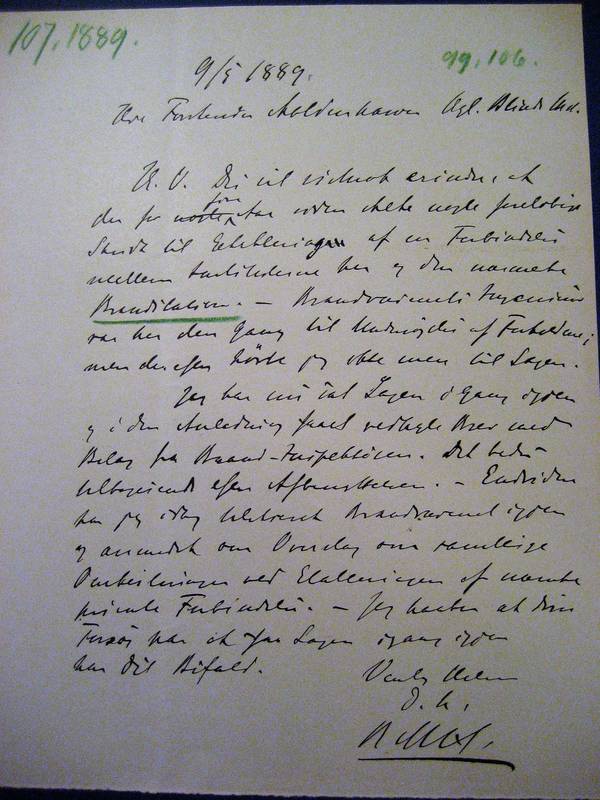 107, 1889.
99, 106.
9/5 1889.
Hrr Forstander Moldenhawer Kgl. Blinde Inst.
K. V. De vil vistnok erindre, at
der for nogle, Aar siden skete nogle foreløbige
Skridt til Etableringen af en Forbindelse
mellem herværende og den nærmeste
Brandstation. — Brandvæsenets Ingeniør
var her den Gang til Undersøgelse af Forholdene;
men derefter hørte jeg ikke mere til Sagen.
Jeg har nu sat Sagen i Gang igjen
og i den Anledning faaet vedlagte Brev med
Bilag fra Brand-Inspektøren. Det bedes
tilbagesendt efter Afbenyttelsen. — Endvidere
har jeg idag tilskrevet Brandvæsenet igjen
og anmodet om Overslag over samtlige
ved Etableringen af nævnte
private Forbindelse. — Jeg haaber at dette
Forsøg paa at faa Sagen igang igjen
har Dit Bifald.
Venlig Hilsen
D. h.